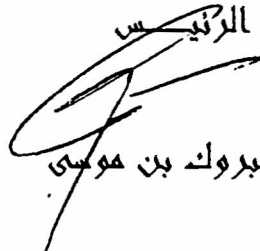 الرئيس
مبروك بن موسى